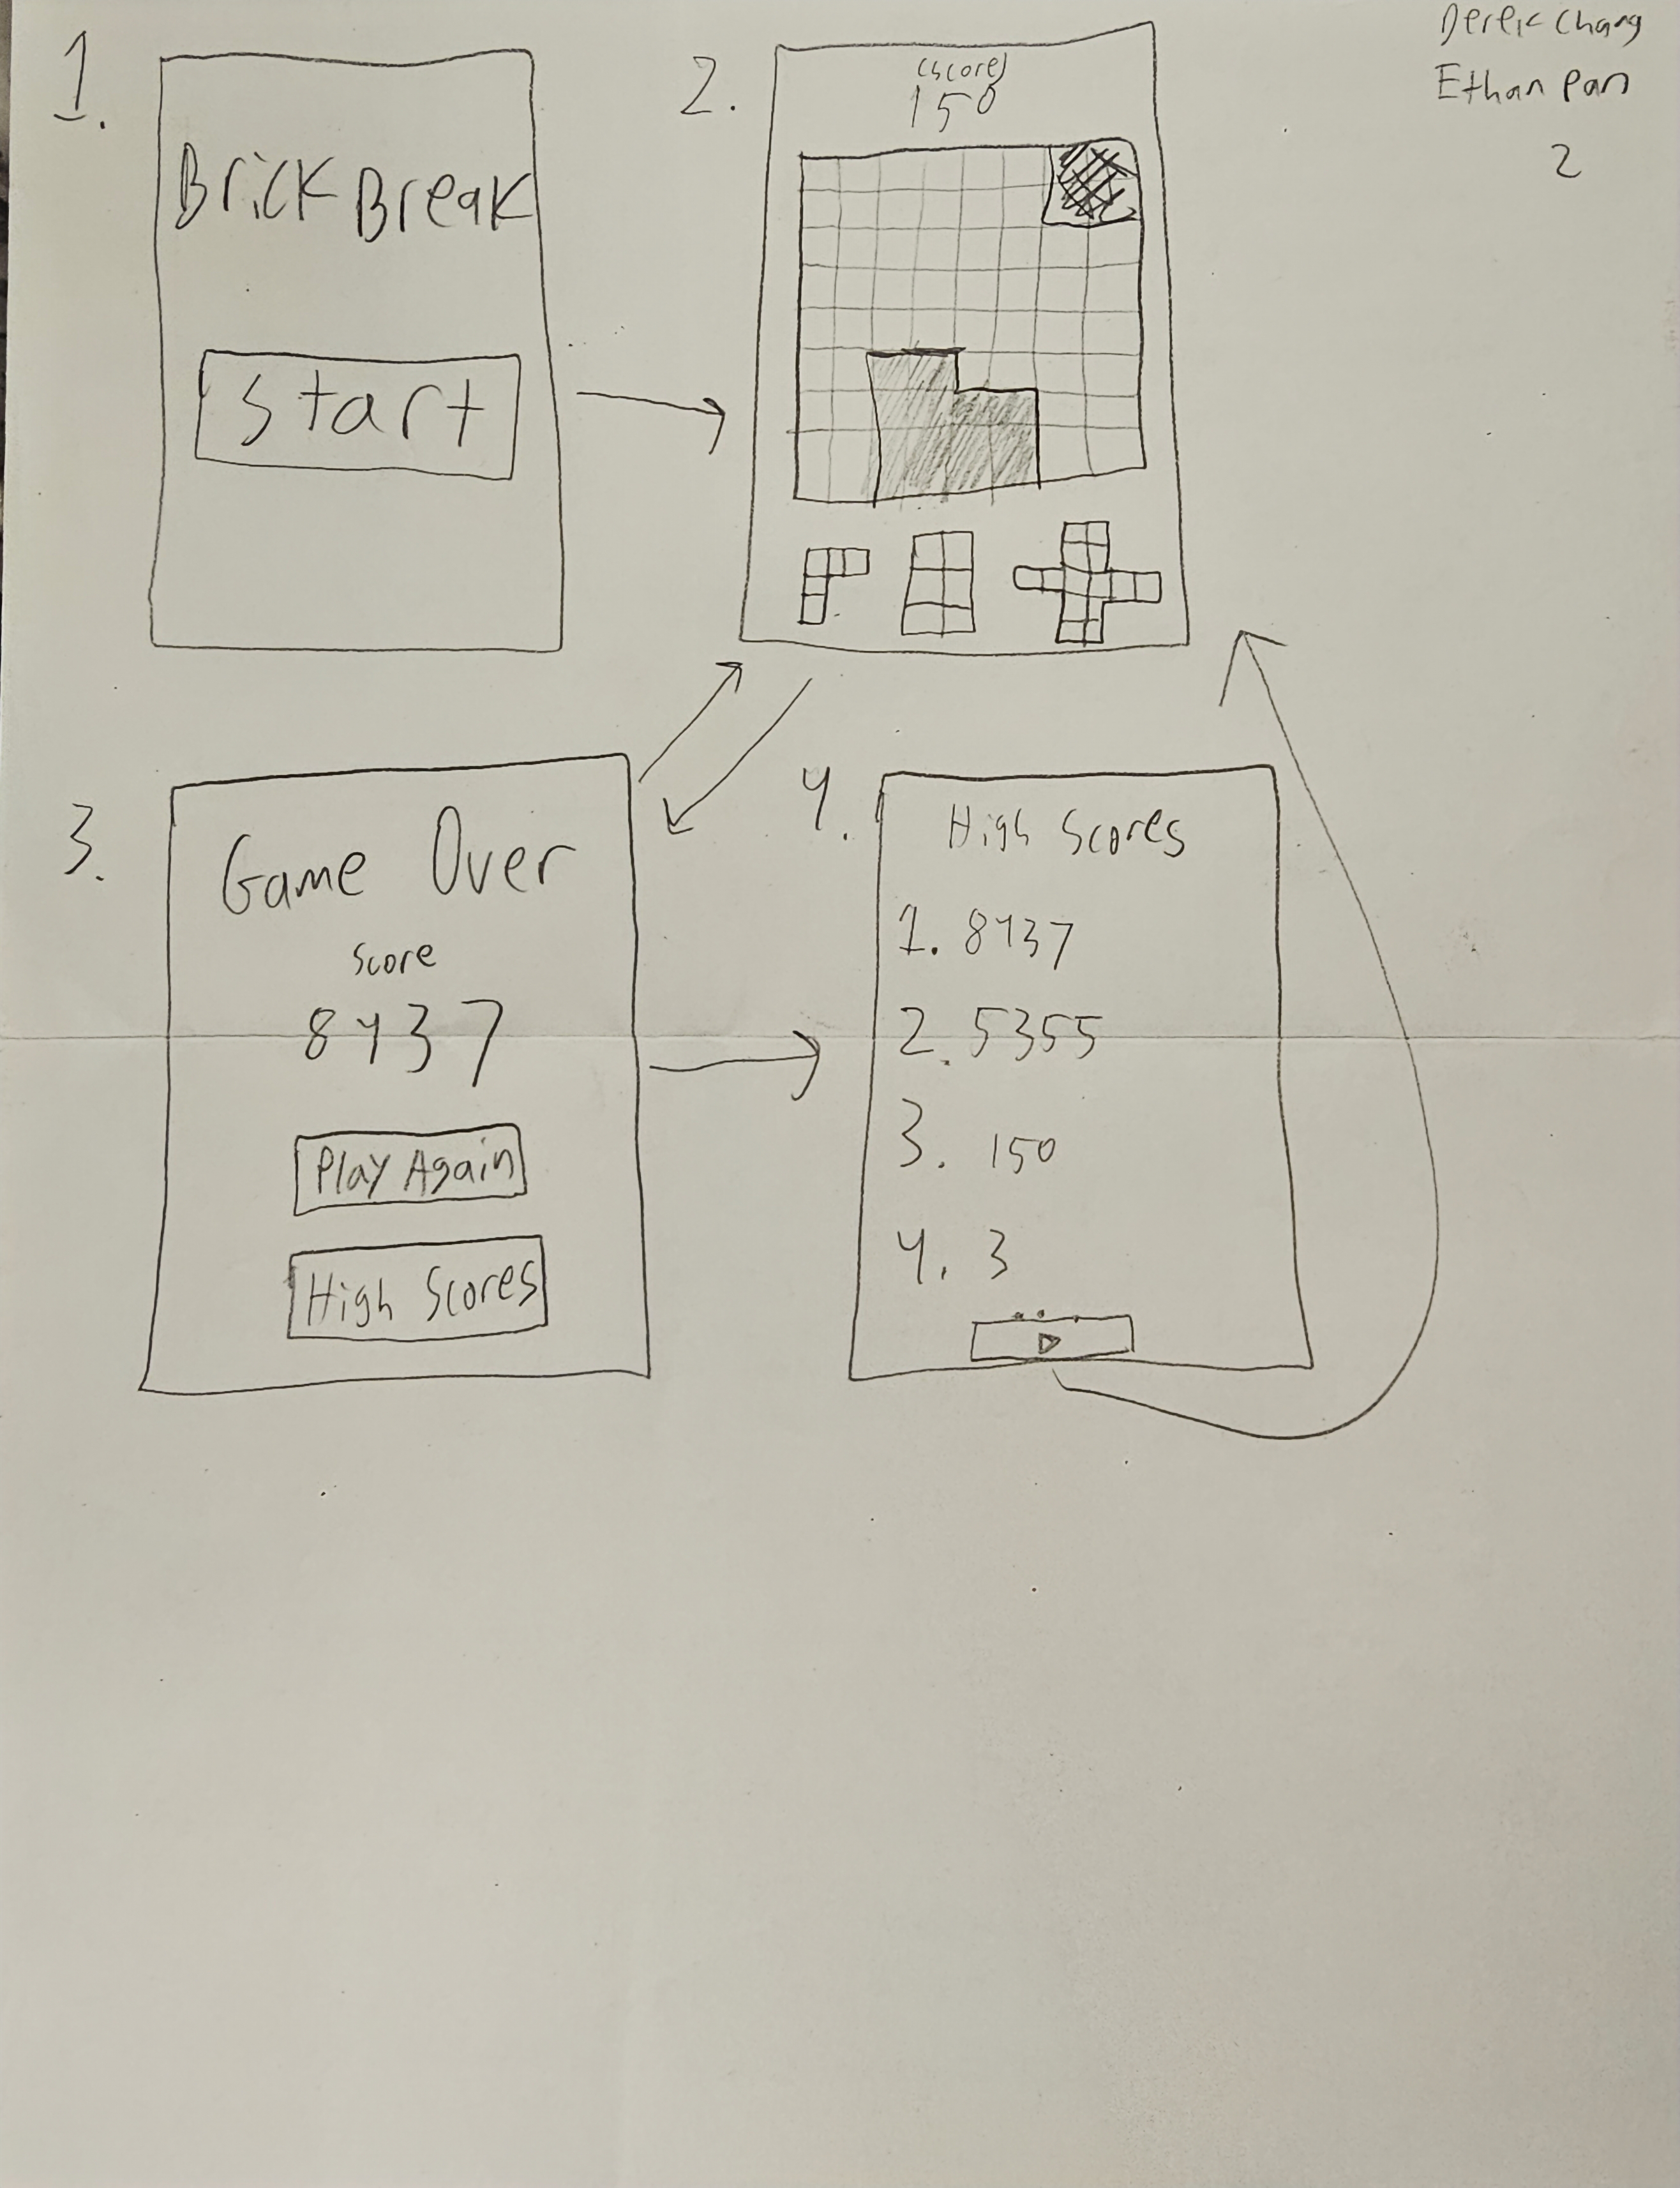 Derek Chang
Ethan Pan
2
1.
Brick Break
Start
2.
(score)
150
3.
Game Over
Score
8437
Play Again
High Scores
4.
High Scores
1. 8437
2. 5355
3. 150
4. 3